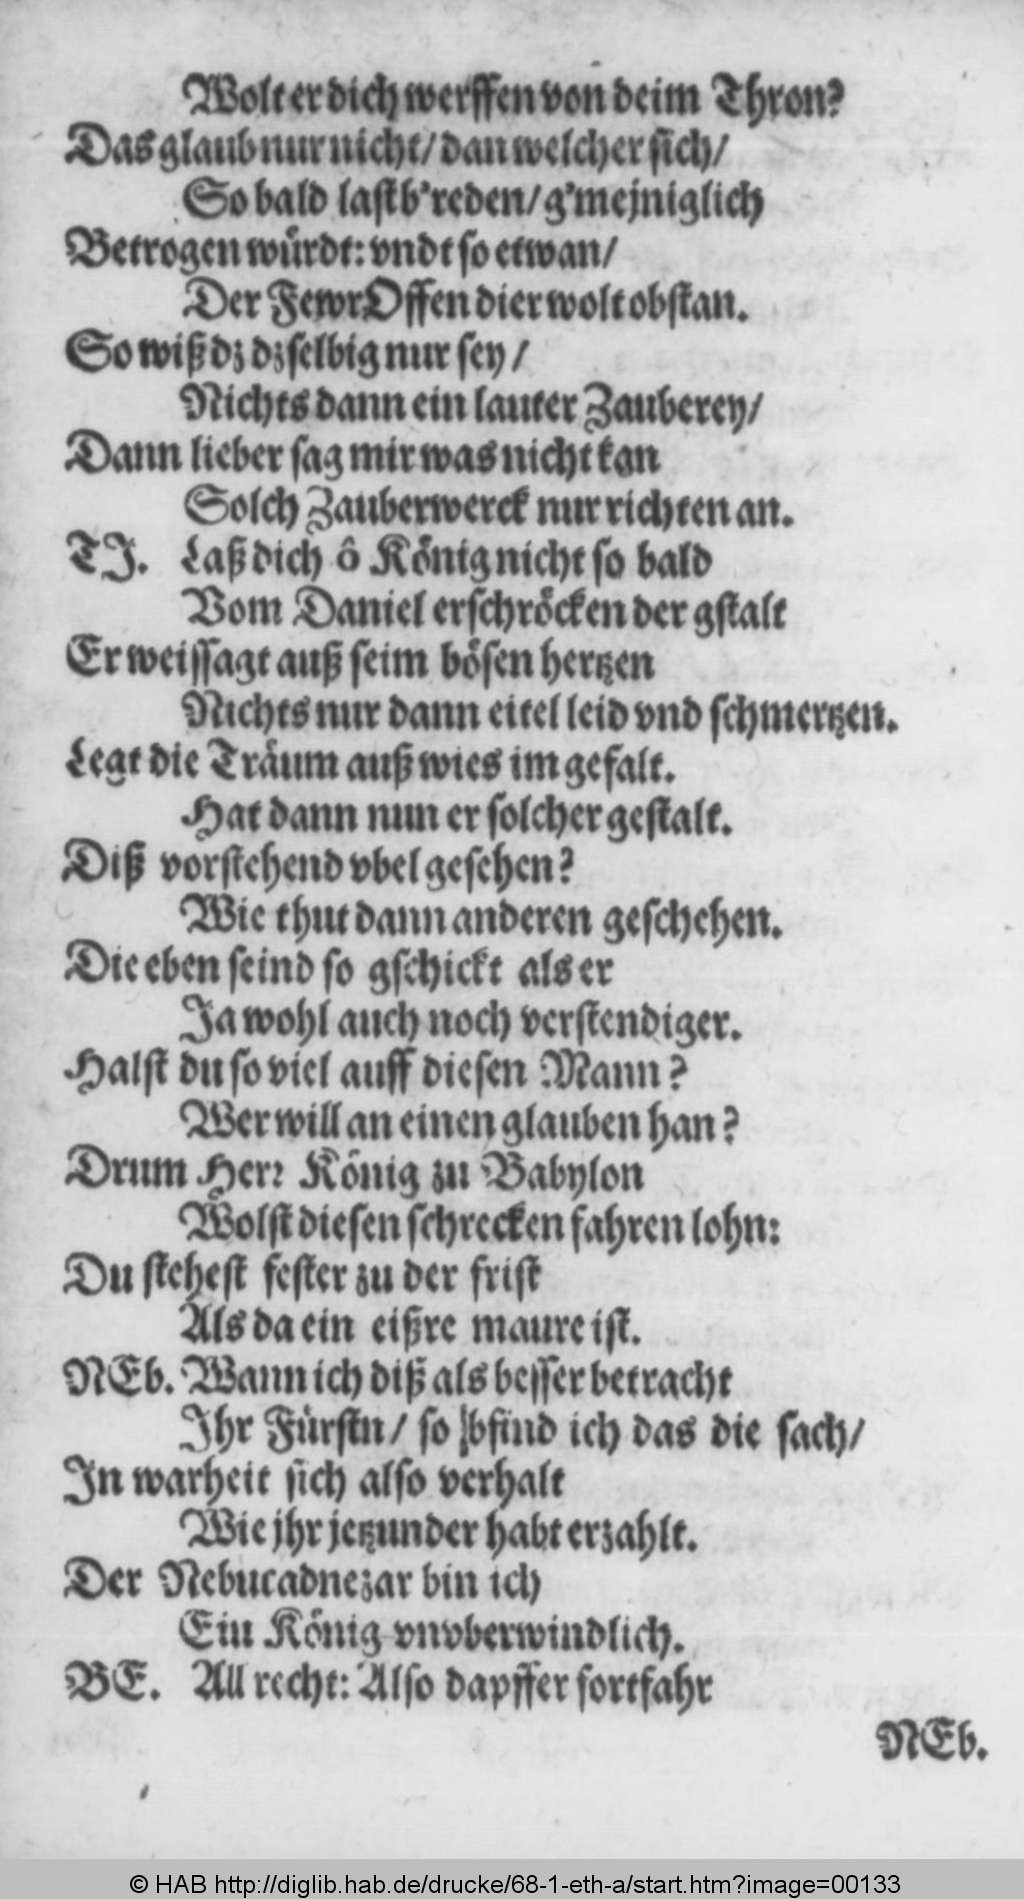 Wolt er dich werffen von deim Thron?
Das glaub nur nicht/ dan welcher sich/
So bald last b'reden/ g'mejniglich
Betrogen würdt: vndt so etwan/
Der FewrOffen dier wolt obstan.
So wiß dz dzselbig nur sey/
Nichts dann ein lauter Zauberey/
Dann lieber sag mir was nicht kan
Solch Zauberwerck nur richten an.
TJ. Laß dich ô König nicht so bald
Vom Daniel erschröcken der gstalt
Er weissagt auß seim bösen hertzen
Nichts nur dann eitel leid vnd schmertzen.
Legt die Träum auß wies im gefalt.
Hat dann nun er solcher gestalt.
Diß vorstehend vbel gesehen?
Wie thut dann anderen geschehen.
Die eben seind so gschickt als er
Ja wohl auch noch verstendiger.
Halst du so viel auff diesen Mann?
Wer will an einen glauben han?
Drum Herr König zu Babylon
Wolst diesen schrecken fahren lohn:
Du stehest fester zu der frist
Als da ein eißre maure ist.
NEb. Wann ich diß als besser betracht
Ihr Fürstn/ so bfind ich das die sach/
In warheit sich also verhalt
Wie jhr jetzunder habt erzahlt.
Der Nebucadnezar bin ich
Ein König vnvberwindlich.
BE. All recht: Also dapffer fortfahr
NEb.
© HAB http://diglib.hab.de/drucke/68-1-eth-a/start.htm?image=00133